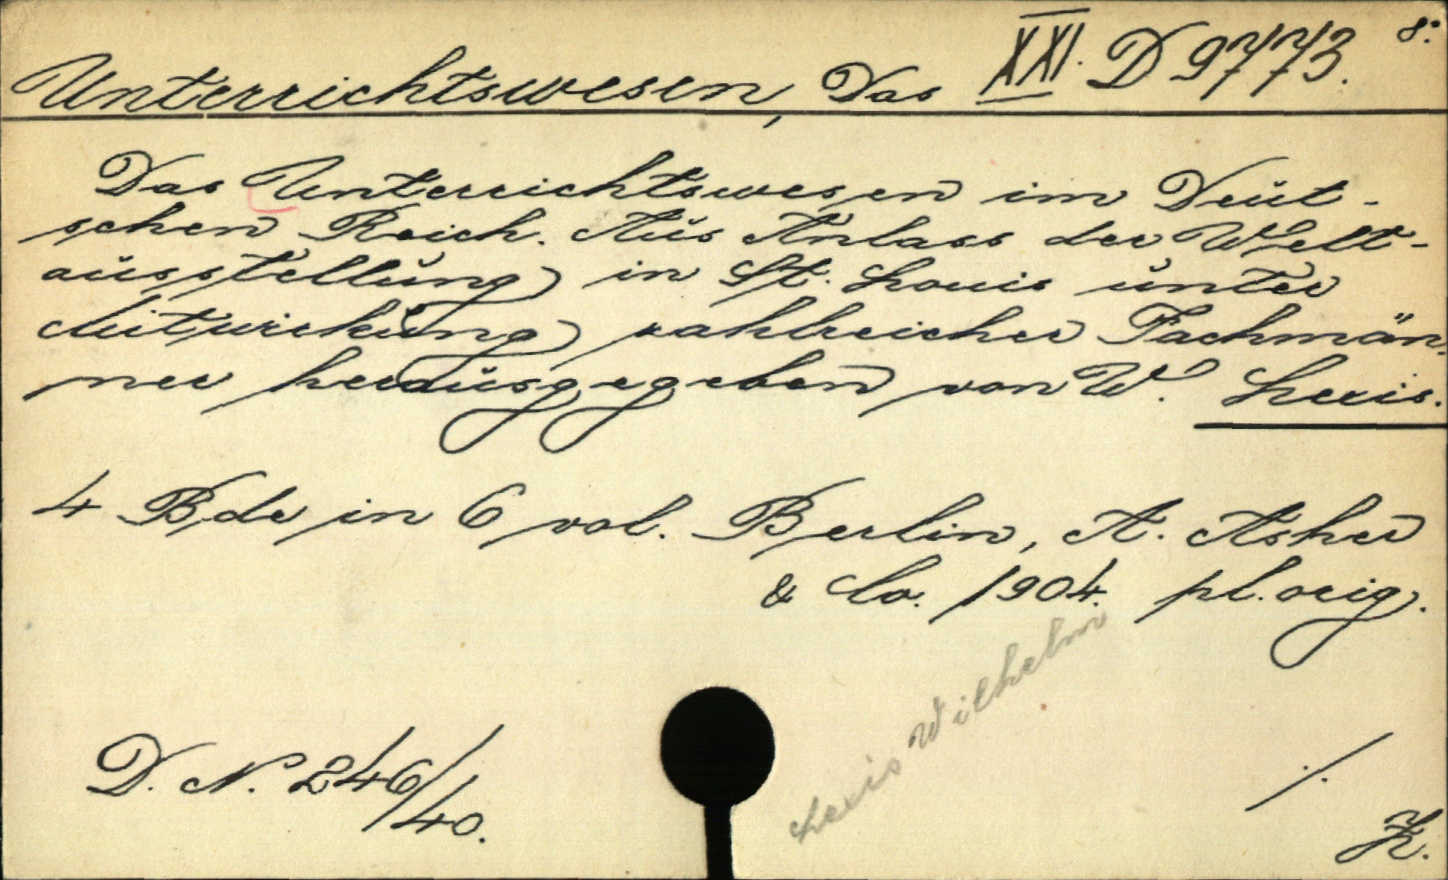 Unterrichtswesen, Das XXI. D 9773. 8°.
Das Unterrichtswesen im Deut-
schen Reich. Aus Anlass der Welt-
ausstellung in St. Louis unter
Mitwirkung zahlreicher Fachmän-
ner herausgegeben von W. Lexis.
4 Bde in 6 vol. Berlin, A. Asher
& Co. 1904. pl. orig.
Lexis Wilhelm
D. N. 246/40.
./.